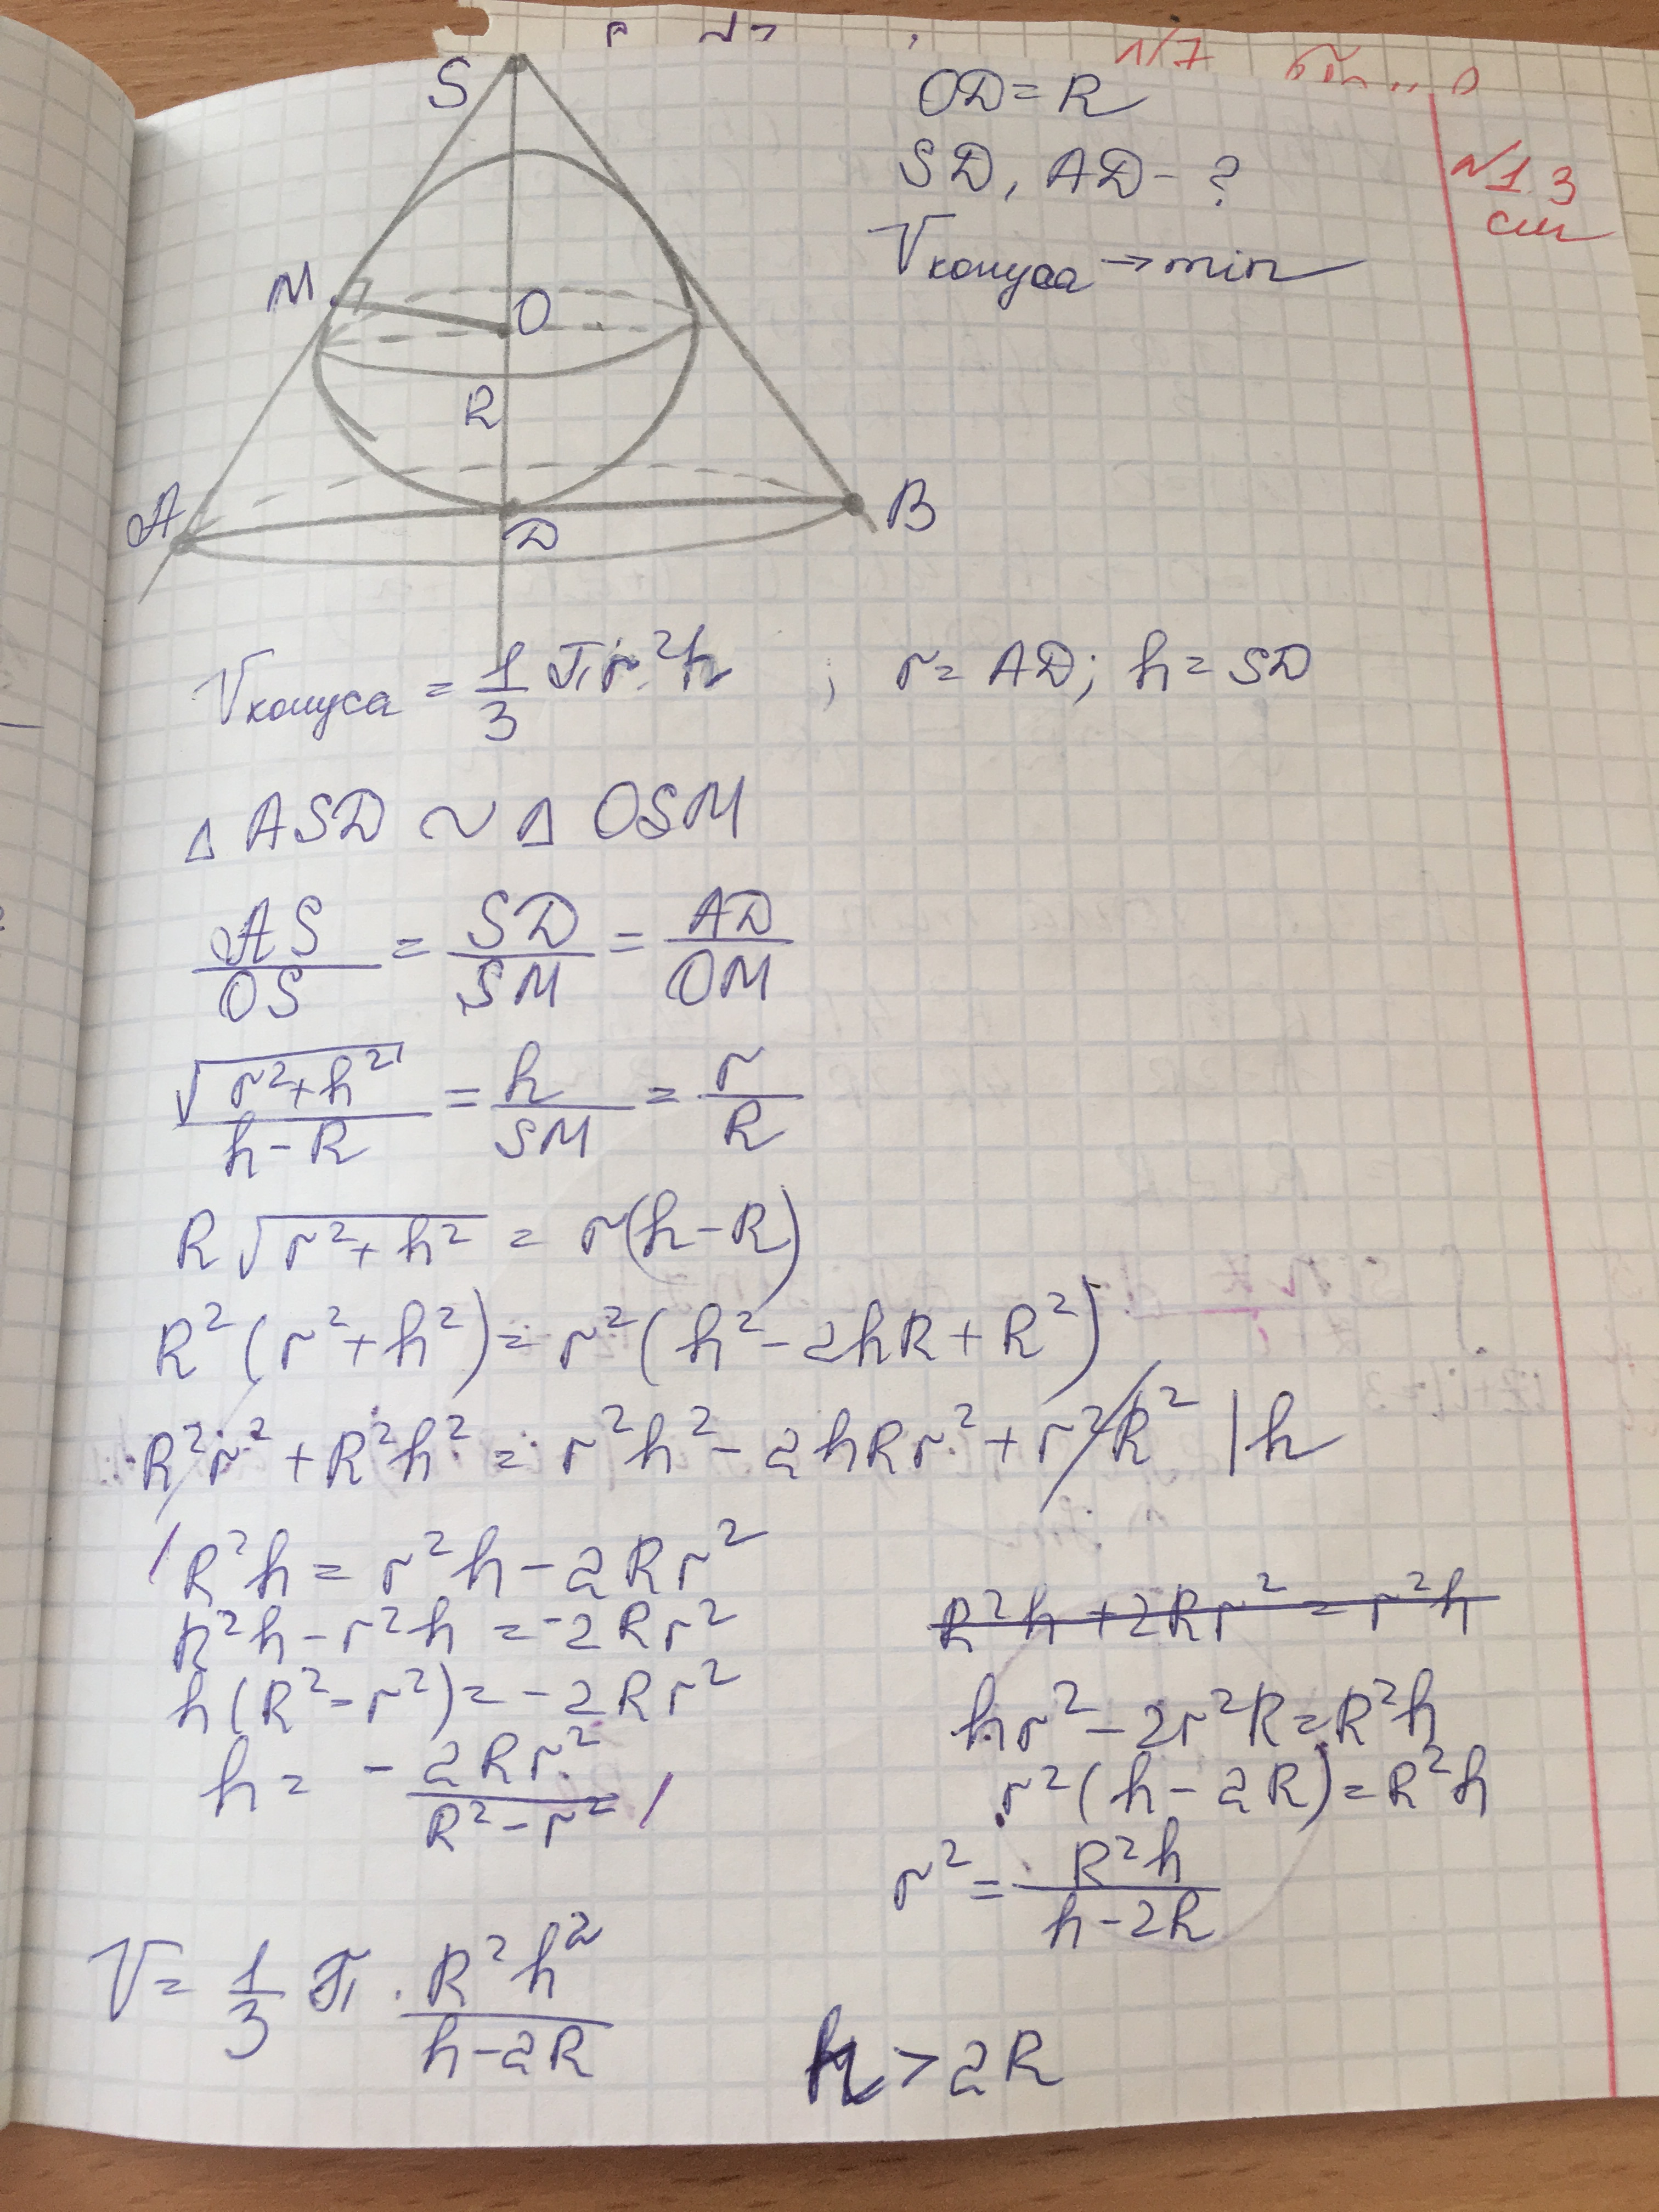 N7
S
OD = R
SD, AD - ?
V конуса → min
N1.3
см
M
O
R
A
D
B
V конуса = 1/3 π r²h ; r = AD; h = SD
Δ ASD ~ Δ OSM
AS/OS = SD/SM = AD/OM
√(r²+h²)/(h-R) = h/SM = r/R
R√(r²+h²) = r(h-R)
R²(r²+h²) = r²(h²-2hR+R²)
R²r² + R²h² = r²h² - 2hRr² + r²R² | h
R²h = r²h - 2Rr²
R²h - r²h = -2Rr²
h(R²-r²) = -2Rr²
h = - 2Rr²/(R²-r²)
R²h + 2Rr² = r²h
hr² - 2r²R = R²h
r²(h-2R) = R²h
r² = R²h/(h-2R)
V = 1/3 π · R²h²/(h-2R)
h > 2R